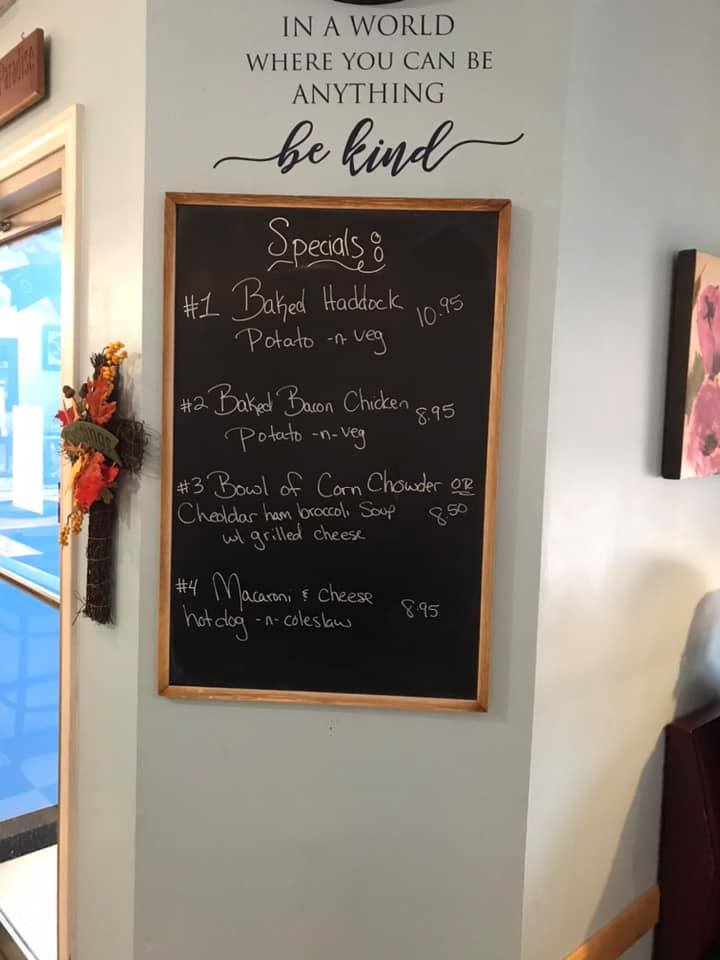 Paradise
IN A WORLD
WHERE YOU CAN BE
ANYTHING
be kind
Specials:
#1 Baked Haddock 10.95
Potato -n- veg
#2 Baked Bacon Chicken 8.95
Potato -n- veg
#3 Bowl of Corn Chowder OR
Cheddar ham broccoli Soup 8.50
w/ grilled cheese
#4 Macaroni & cheese
hotdog -n- coleslaw 8.95